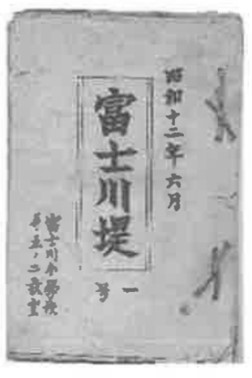 昭和十二年六月
富士川堤
一号
富士川小学校
第五ノ二教室